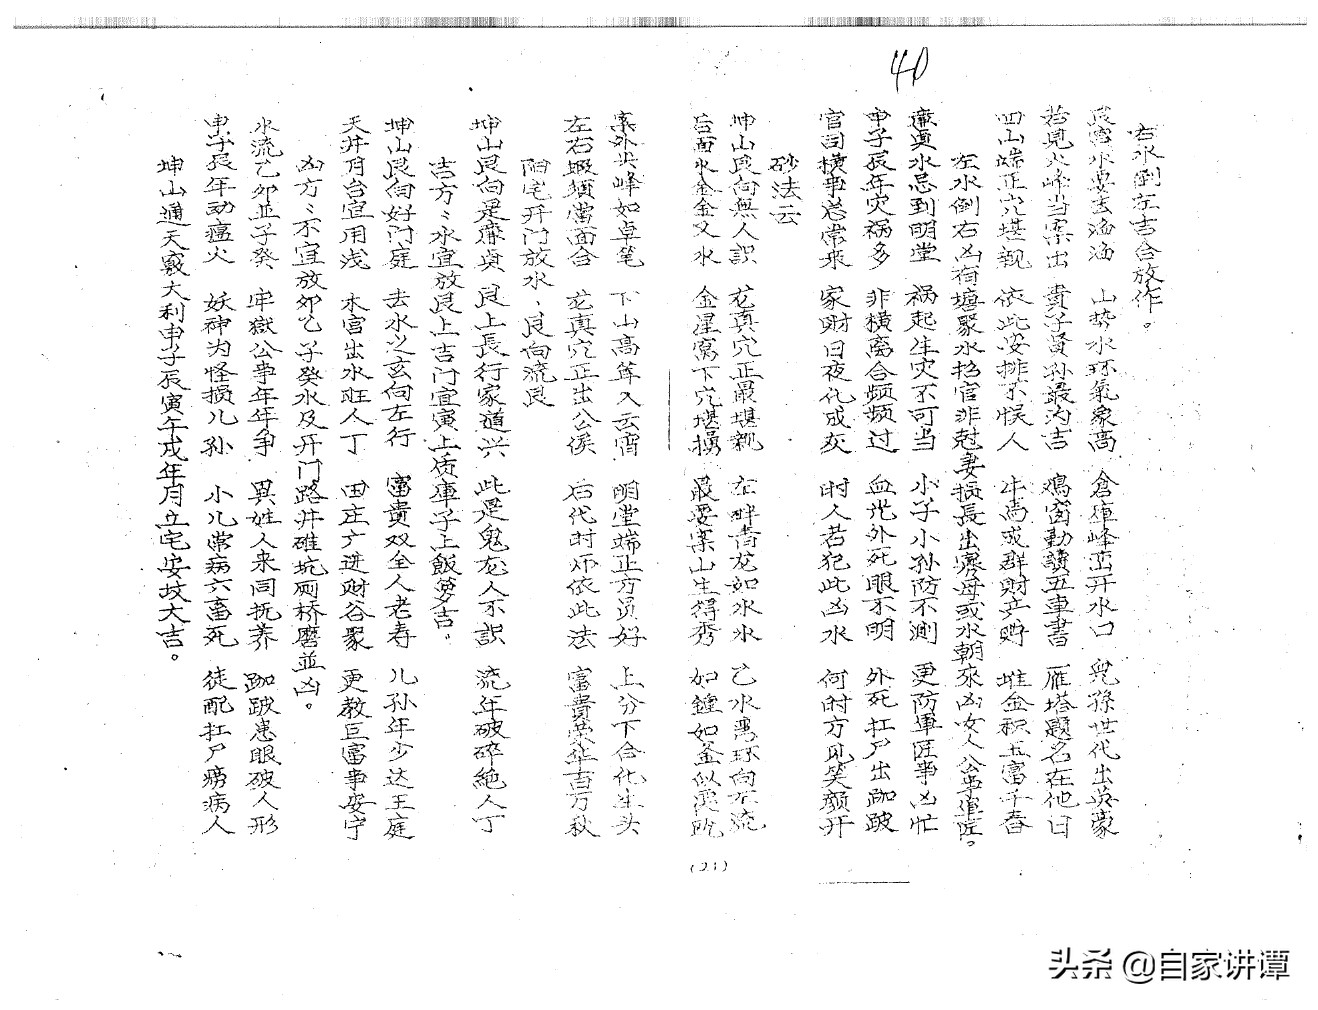 40
右水倒左吉合放作。
艮宫水要去滔滔 山势水环氣象高 倉庫峰峦开水口 兒孫世代出英豪
若見火峰当案出 貴子賢孙最为吉 鳴窗勤讀五車書 雁塔題名在他日
四山端正穴堪親 依此安排不悮人 牛羊成群財产貯 堆金积玉富千春
左水倒右凶有塘聚水招官非尅妻损長出寡母或水朝來凶女人公事軍匠。
黄泉水忌到明堂 祸起生灾不可当 小子小孙防不测 更防軍匠事凶忙
申子辰年灾祸多 非横离合频频过 血光外死眼不明 外死扛尸出跏跛
官司横事总常来 家財日夜化成灰 时人若犯此凶水 何时方见笑颜开
砂法云
坤山艮向無人識 龙真穴正最堪親 左畔青龙如水水 乙水湾环向不流
后面水金金又水 金星窝下穴堪揚 最要案山生得秀 如鐘如釜似
案外尖峰如卓笔 下山高耸入云霄 明堂端正方员好 上分下合化生头
左右缎须當面合 龙真穴正出公侯 后代时师依此法 富貴荣华百万秋
阳宅开门放水、艮向流艮
坤山艮向是廉貞 艮上長行家道兴 此是鬼龙人不識 流年破碎絶人丁
吉方：水宜放艮上吉门宜寅上质庫子上飯箩吉。
坤山艮向好门庭 去水之玄向左行 富貴双全人老寿 儿孙年少达王庭
天井月台宜用浅 本宫出水旺人丁 田庄广进财谷聚 更教巨富事安宁
凶方：不宜放卯乙子癸水及开门路井碓坑厕桥磨並凶。
水流乙卯並子癸 牢獄公事年年争 異姓人来同抚养 跏跛患眼破人形
申子辰年动瘟火 妖神为怪损儿孙 小儿常病六畜死 徒配扛尸痨病人
坤山通天竅大利申子辰寅午戌年月立宅安坟大吉。
(21)
头条 @自家讲谭